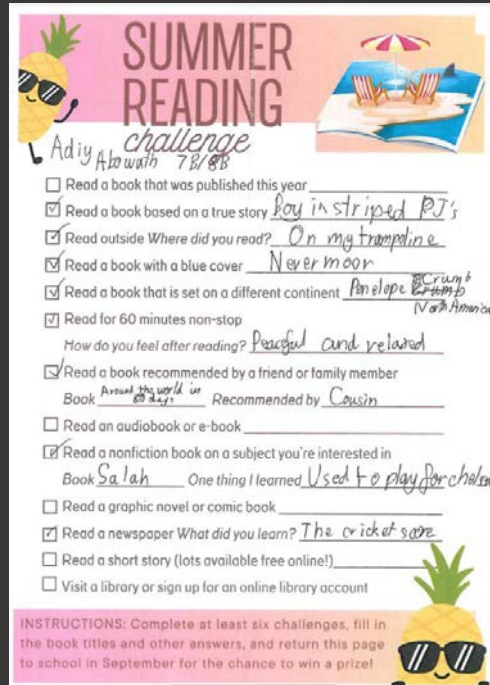 SUMMER
READING
challenge
Adiy Abowath 7B/8B
Read a book that was published this year
Read a book based on a true story Boy in striped PJ's
Read outside Where did you read? On my trampoline
Read a book with a blue cover Nevermoor
Read a book that is set on a different continent Penelope Crumb
North America
Read for 60 minutes non-stop
How do you feel after reading? Peaceful and relaxed
Read a book recommended by a friend or family member
Book Around the world in 80 days Recommended by Cousin
Read an audiobook or e-book
Read a nonfiction book on a subject you're interested in
Book Salah One thing I learned Used to play for chelsea
Read a graphic novel or comic book
Read a newspaper What did you learn? The cricket score
Read a short story (lots available free online!)
Visit a library or sign up for an online library account
INSTRUCTIONS: Complete at least six challenges, fill in
the book titles and other answers, and return this page
to school in September for the chance to win a prize!